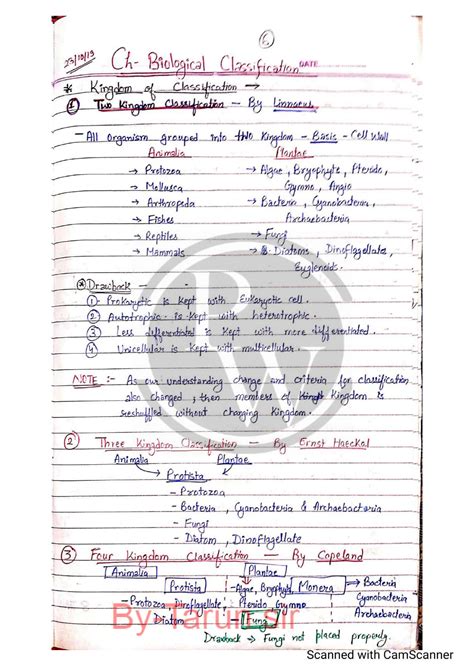 6
23/10/19
Ch- Biological Classification DATE
* Kingdom of Classification →
① Two Kingdom Classification - By Linnaeus
- All Organism grouped into two Kingdom - Basis - Cell Wall
Animalia Plantae
→ Protozoa → Algae, Bryophyte, Pterido,
→ Mollusca Gymno, Angio
→ Arthropoda → Bacteria, Cyanobacteria,
→ Fishes Archaebacteria
→ Reptiles → Fungi
→ Mammals → Diatoms, Dinoflagellate,
Euglenoids.
* Drawback -
① Prokaryotic is Kept with Eukaryotic cell.
② Autotrophic is Kept with heterotrophic.
③ Less differentiated is Kept with more differentiated.
④ Unicellular is Kept with multicellular.
NOTE :- As our understanding change and criteria for classification
also changed, then members of Kingdom is
reshuffled without changing Kingdom.
② Three Kingdom Classification - By Ernst Haeckel
Animalia Plantae
Protista
- Protozoa
- Bacteria, Cyanobacteria & Archaebacteria
- Fungi
- Diatom, Dinoflagellate
③ Four Kingdom Classification - By Copeland
Animalia Plantae
Protista - Algae, Bryophyte Monera → Bacteria
- Protozoa Dinoflagellate, Pterido Gymno Cyanobacteria
Diatom - Fungi Archaebacteria
By Tarun sir
Drawback → Fungi not placed properly.
PW
Scanned with CamScanner